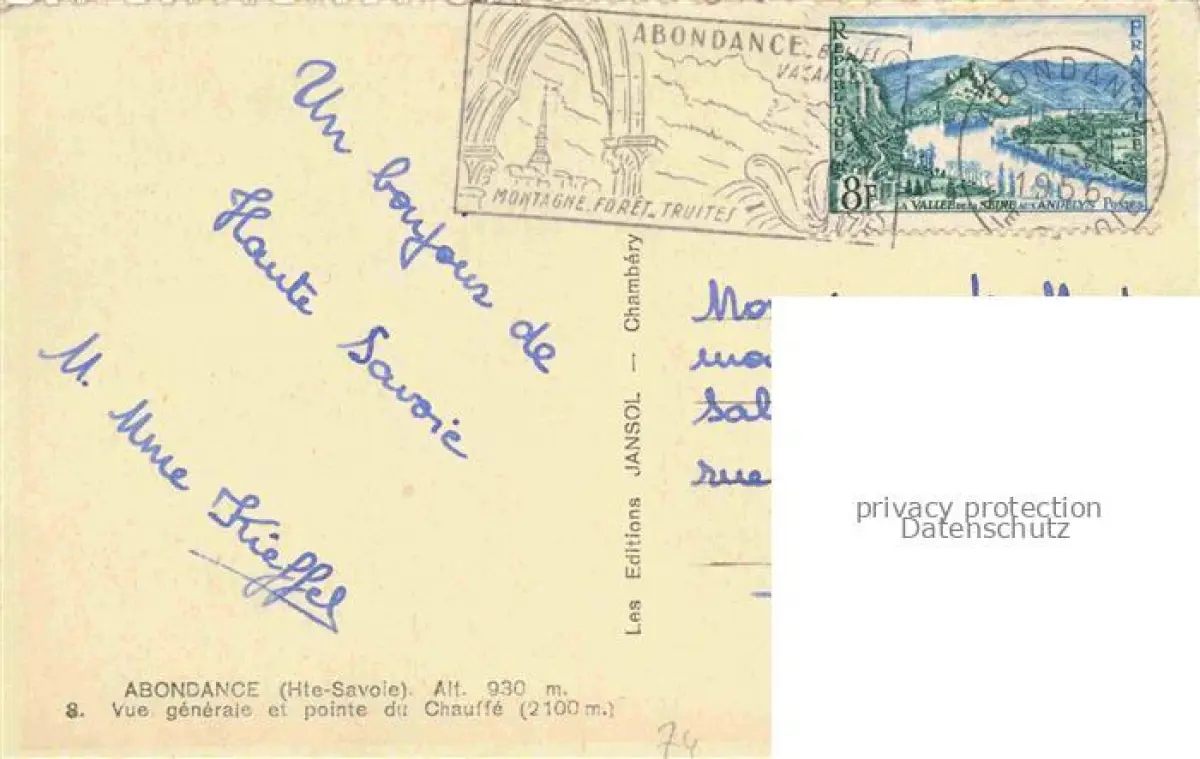 ABONDANCE
BELLES
MONTAGNE. FORÊT. TRUITES
RÉPUBLIQUE
FRANÇAISE
8F
LA VALLÉE DE LA SEINE AUX ANDELYS POSTES
1955
Un bonjour de
Haute Savoie
M. Mme Kieffel
Les Editions JANSOL — Chambéry
rue
privacy protection
Datenschutz
ABONDANCE (Hte-Savoie). Alt. 930 m.
8. Vue générale et pointe du Chauffé (2100 m.)
74